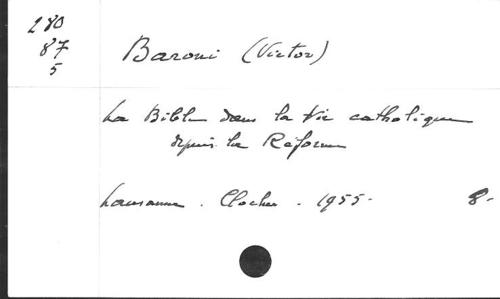 280
87
5
Baroni (Victor)
La Bible dans la Vie catholique
depuis la Réforme
Lausanne. Clocher. 1955. 8-